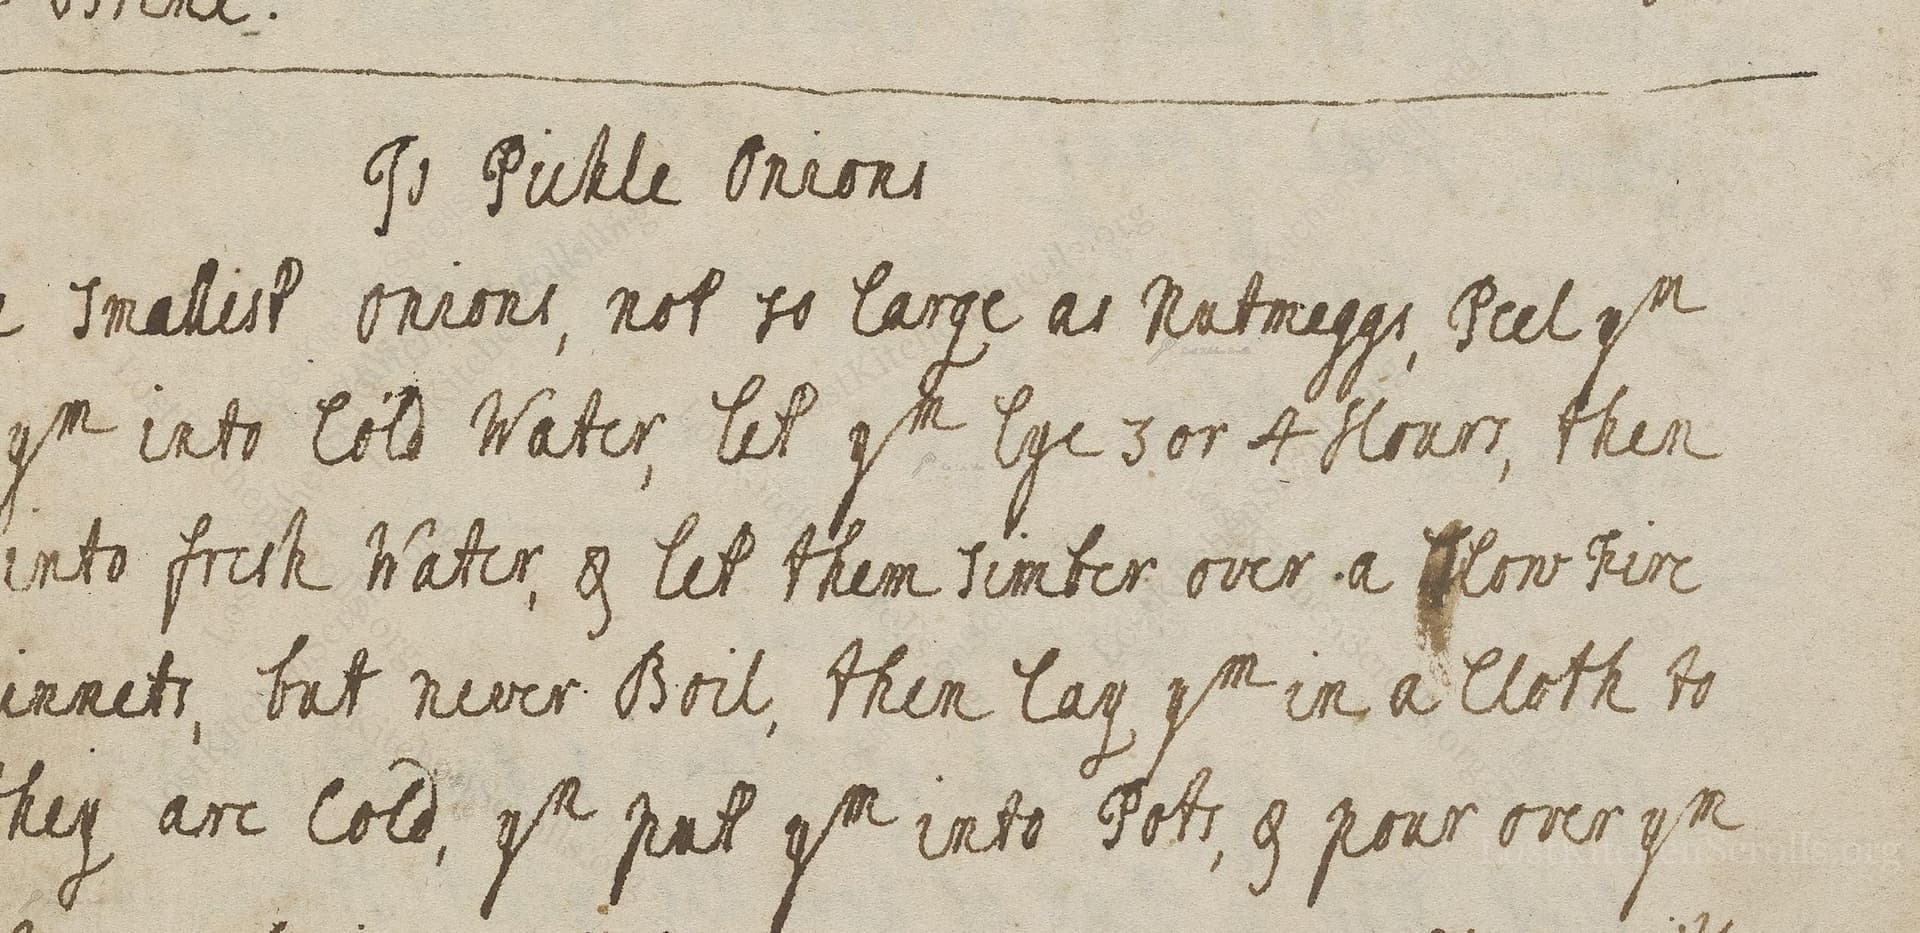 Brine.
To Pickle Onions
smallest onions, not so large as Nutmeggs, Peel yᵐ
yᵐ into Cold Water, let yᵐ lye 3 or 4 Hours, then
into fresh Water, & let them simber over a slow Fire
innets, but never Boil, then lay yᵐ in a Cloth to
they are Cold, yⁿ put yᵐ into Pots, & pour over yᵐ
LostKitchenScrolls.org